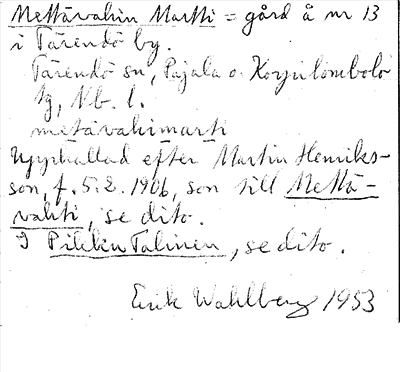 Mettävahin Martti = gård å nr 13
i Tärendö by.
Tärendö sn, Pajala o. Korpilombolo
tg, Nb. l.
metävahimarti
Uppkallad efter Martin Henriks-
son, f. 5.2.1906, son till Mettä-
vahti, se dito.
I Pilikin Talinen, se dito.
Erik Wahlberg 1953